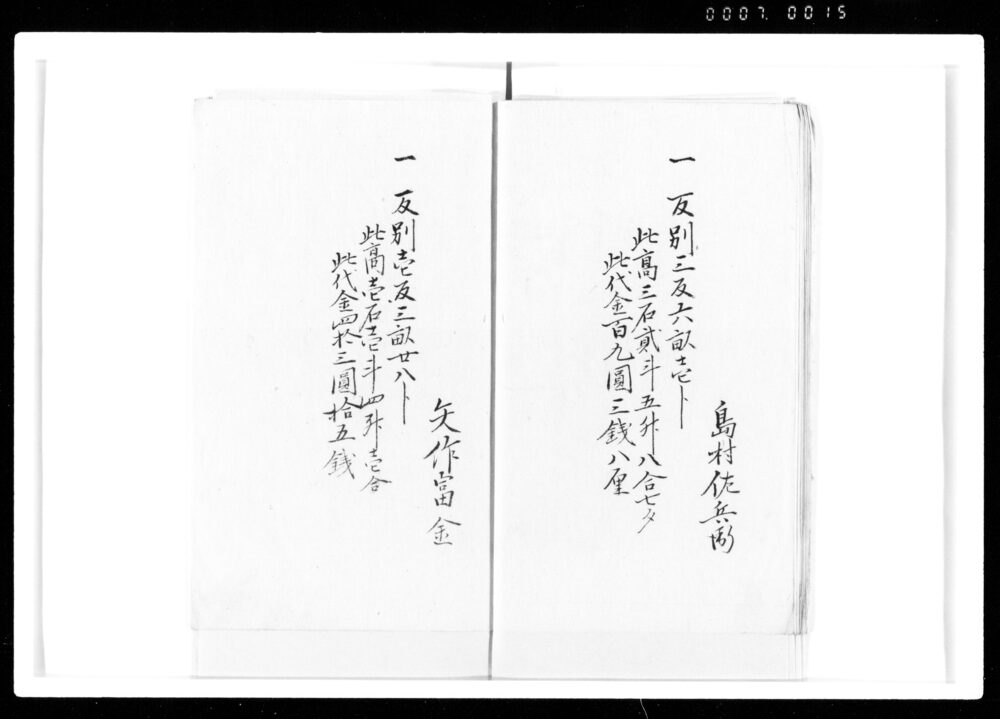 0007.0015
島村佐兵衛
一 反別三反六畝壱卜
此高三石貳斗五升八合七夕
此代金百九圓三錢八厘
矢作富金
一 反別壱反三畝廿八卜
此高壱石壱斗四升壱合
此代金四拾三圓拾五錢